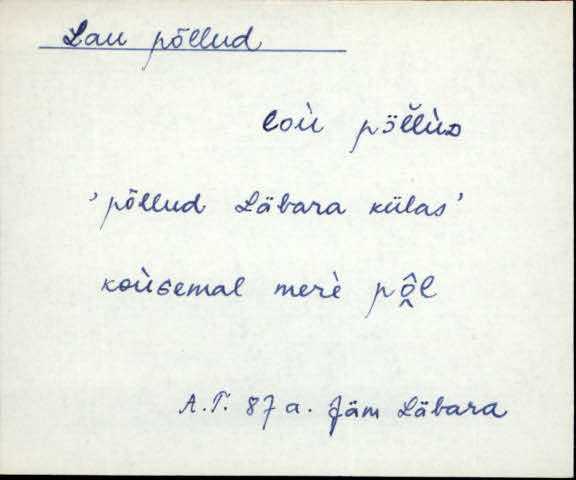 Lau põllud
loù pö̆l̆lùᴅ
'põllud Läbara külas'
koùɢemal merè pô̭l
A.T. 87 a. Jäm Läbara